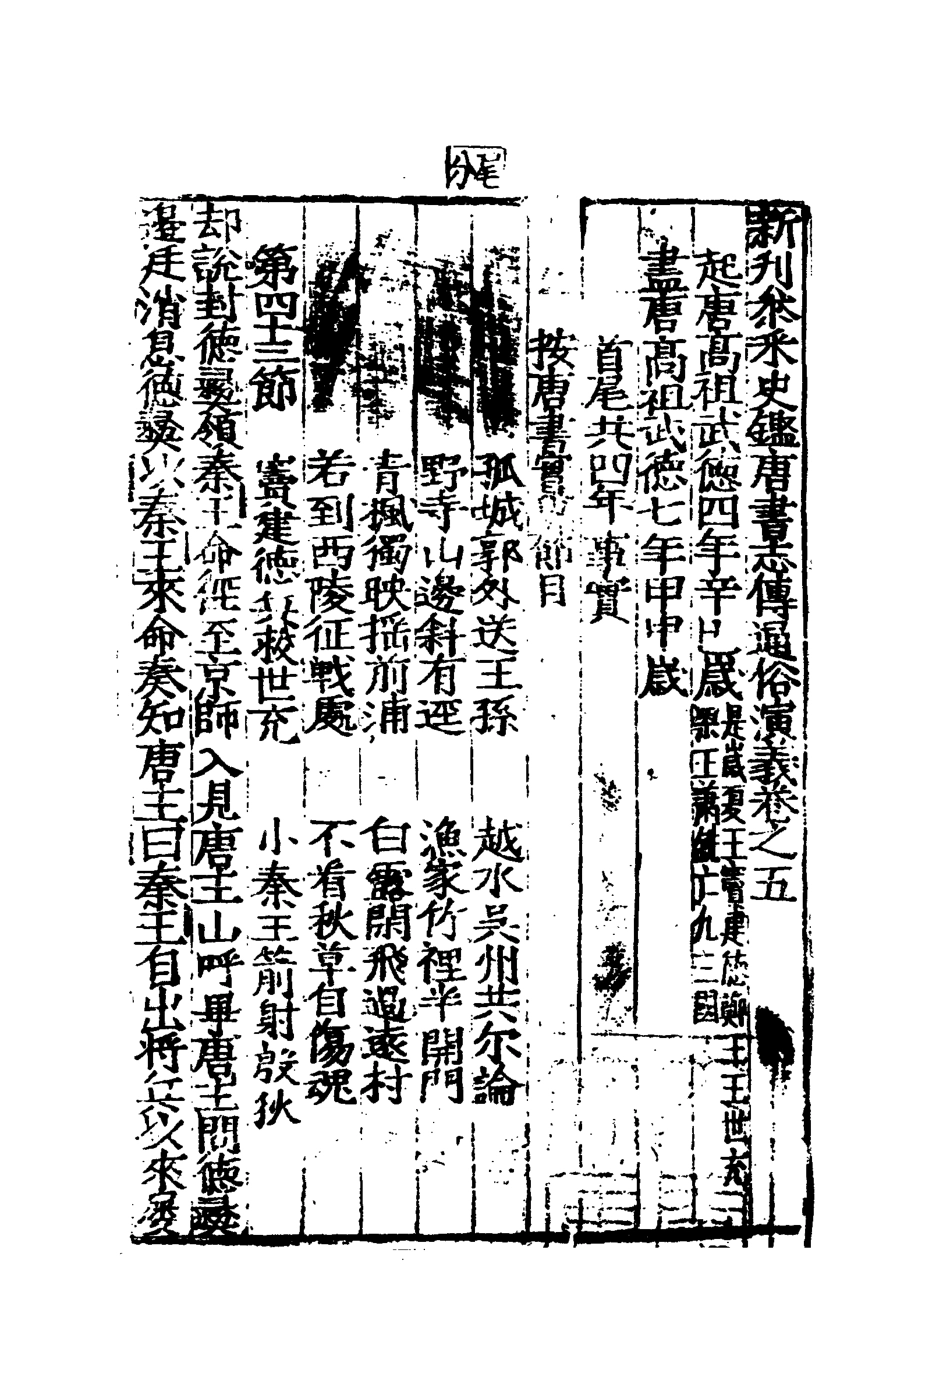 尾分
新刋叅釆史鑑唐書志傳通俗演義卷之五
起唐高祖武德四年辛巳歲是歲夏王竇建德鄭王王世充
梁王蕭銑亡九三國
盡唐高祖武德七年甲申歲
首尾共四年事實
按唐書實節目
孤城郭外送王孫 越水吳州共尔論
野寺山邊斜有逕 漁家竹裡半開門
青楓獨映揺前浦 白露閑飛過遠村
若到西陵征戰處 不看秋草自傷魂
第四十三節 竇建德救世充 小秦王箭射殷狄
却說封德彛領秦王命徑至京師入見唐王山呼畢唐王問德彛
邉廷消息德彛以秦王來命奏知唐王曰秦王自出將兵以來屡